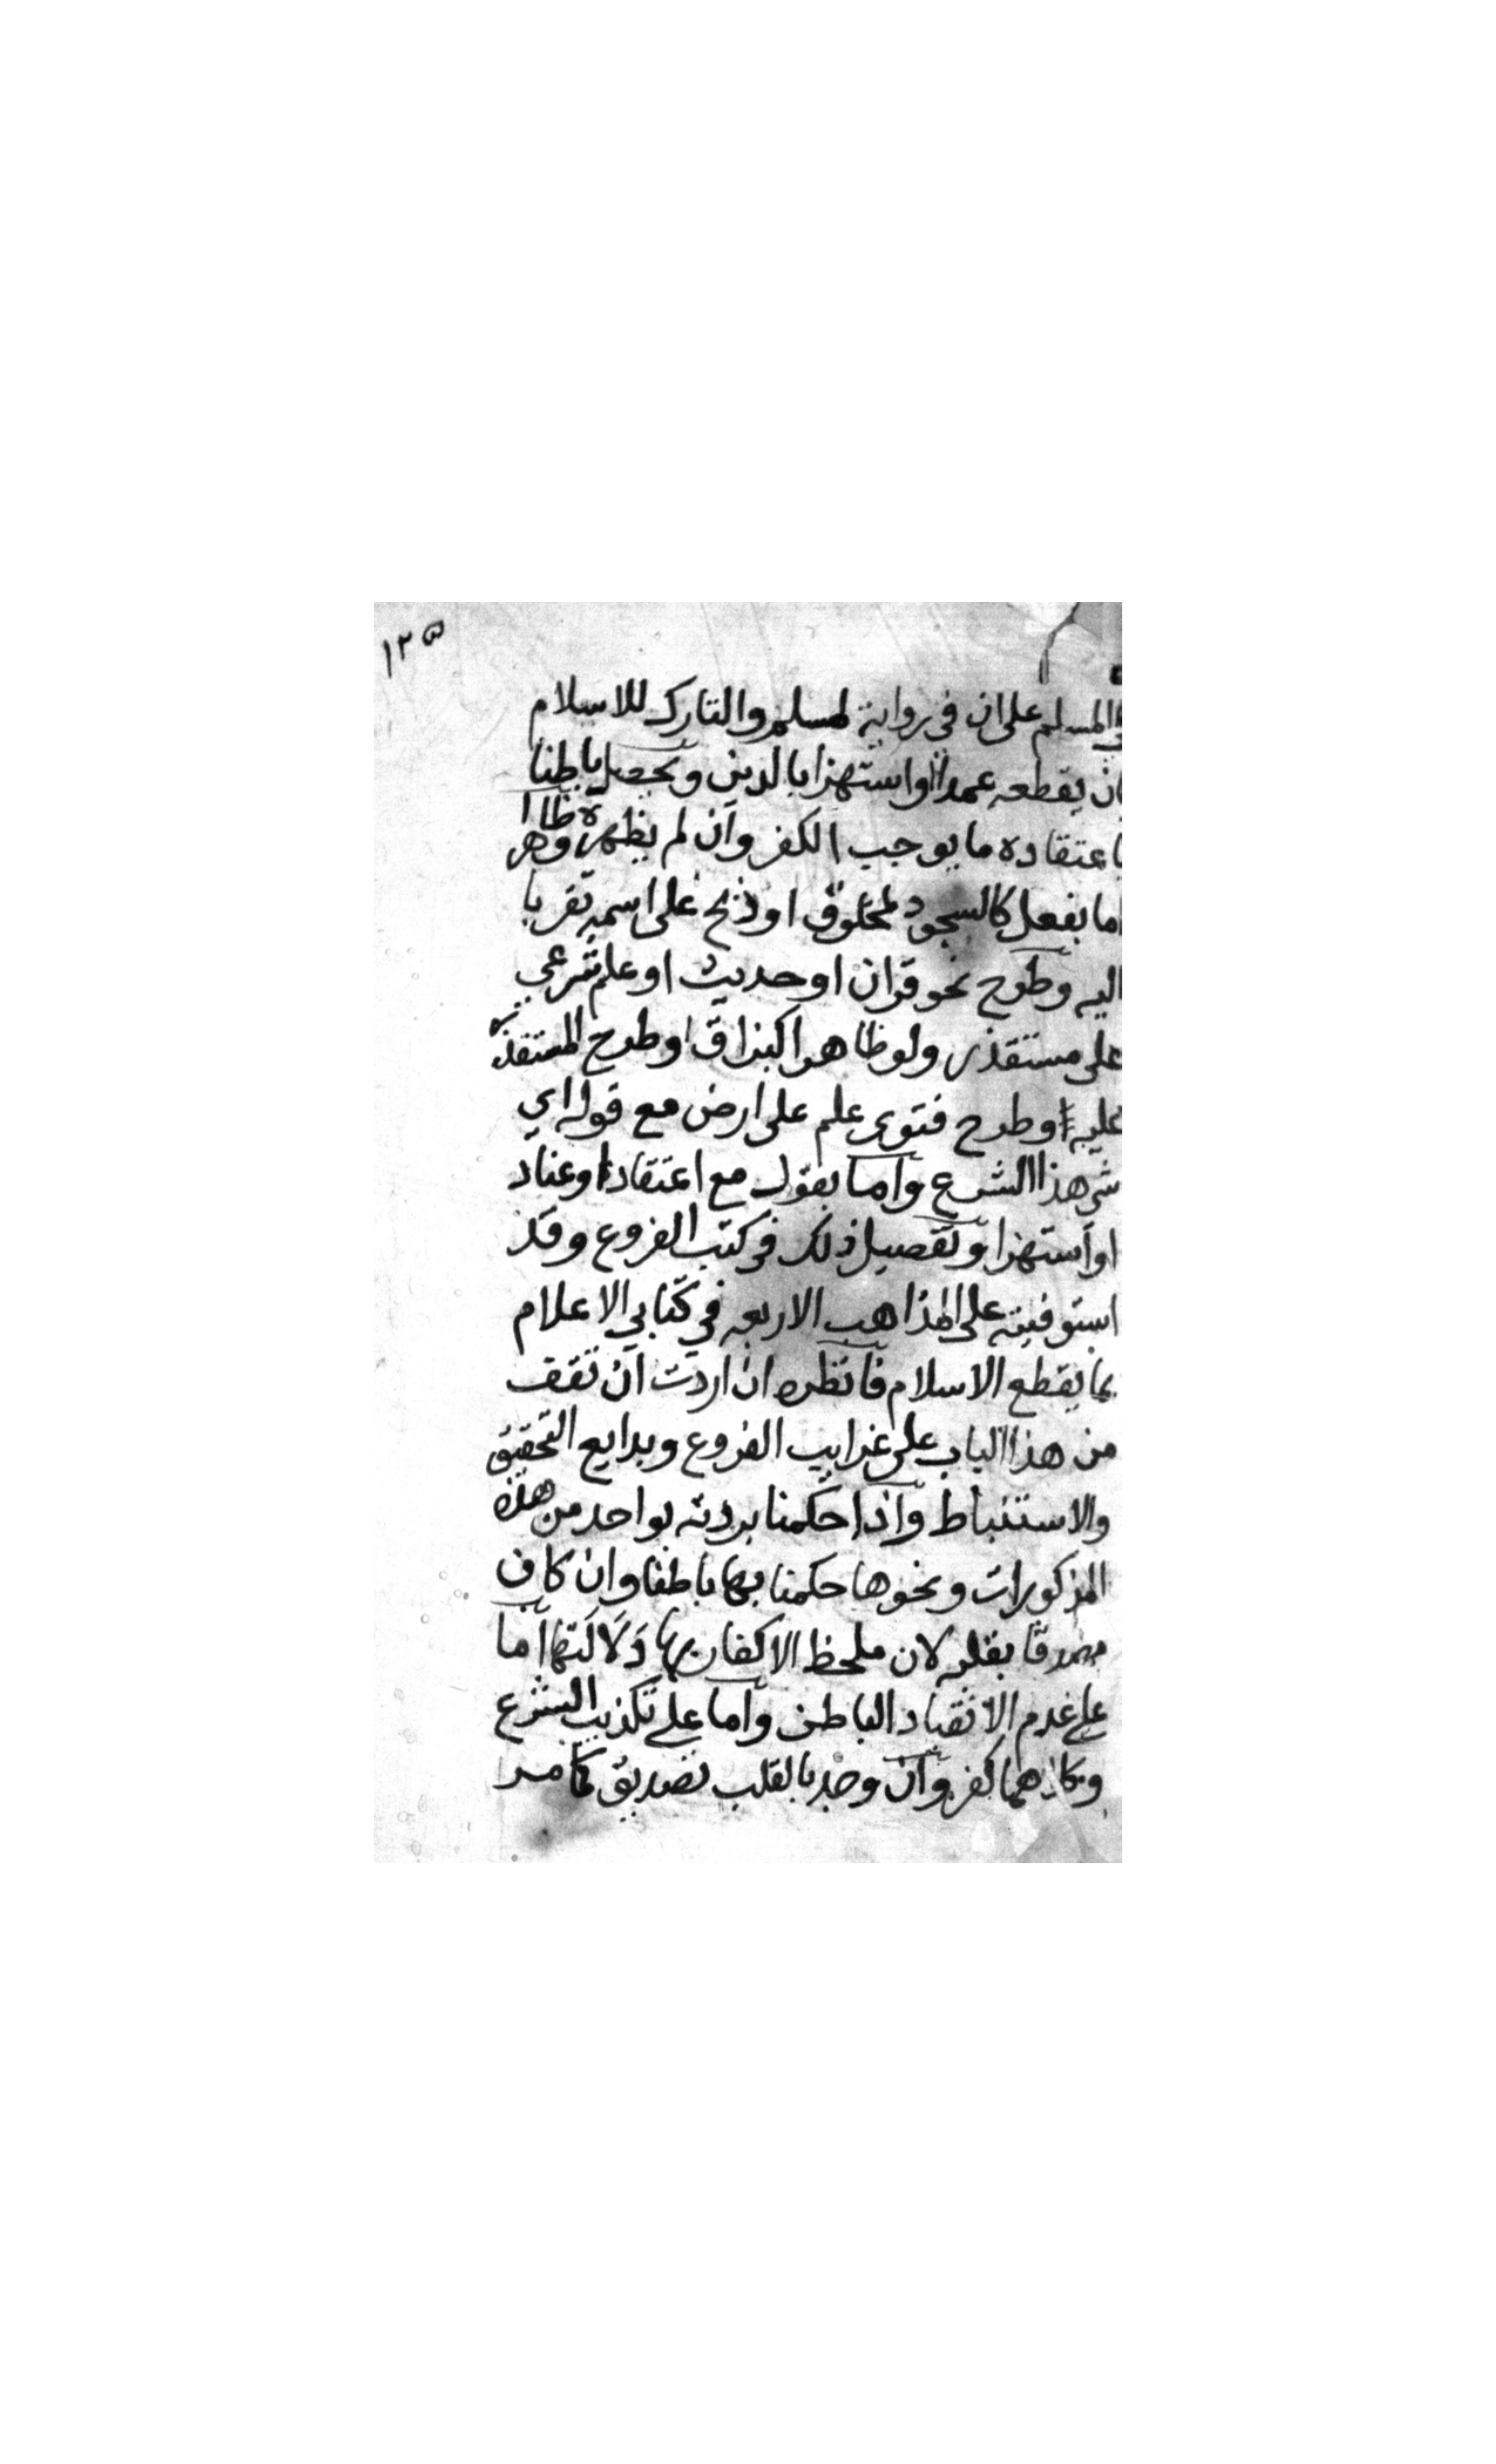 ١٢٥
المسلم على ان في رواية لمسلم والتارك للاسلام
بان يقطعه عمدا او استهزا بالدين ويحصل باطنا
باعتقاده ما يوجب الكفر وان لم يظهره وظاهرا
اما بفعل كالسجود لمخلوق او ذبح على اسمه تقربا
اليه وطرح نحو قران او حديث او علم شرعي
على مستقذر ولو ظاهرا كبزاق او طرح المستقذر
عليه او طرح فتوى علم على ارض مع قوله اي
شي هذا الشرع واما بقول مع اعتقاد او عناد
او استهزا وتفصيل ذلك في كتب الفروع وقد
استوفيته على المذاهب الاربعه في كتابي الاعلام
بما يقطع الاسلام فانظره ان اردت ان تقف
من هذا الباب على غرايب الفروع وبدايع التحقيق
والاستنباط واذا حكمنا بردته بواحد من هذه
المذكورات ونحوها حكمنا بها باطنا وان كان
مصدقا بقلبه لان ملحظ الاكفار بها دلالتها اما
على عدم الانقياد الباطن واما على تكذيب الشرع
وكلاهما كفر وان وجد بالقلب تصديق كما مر